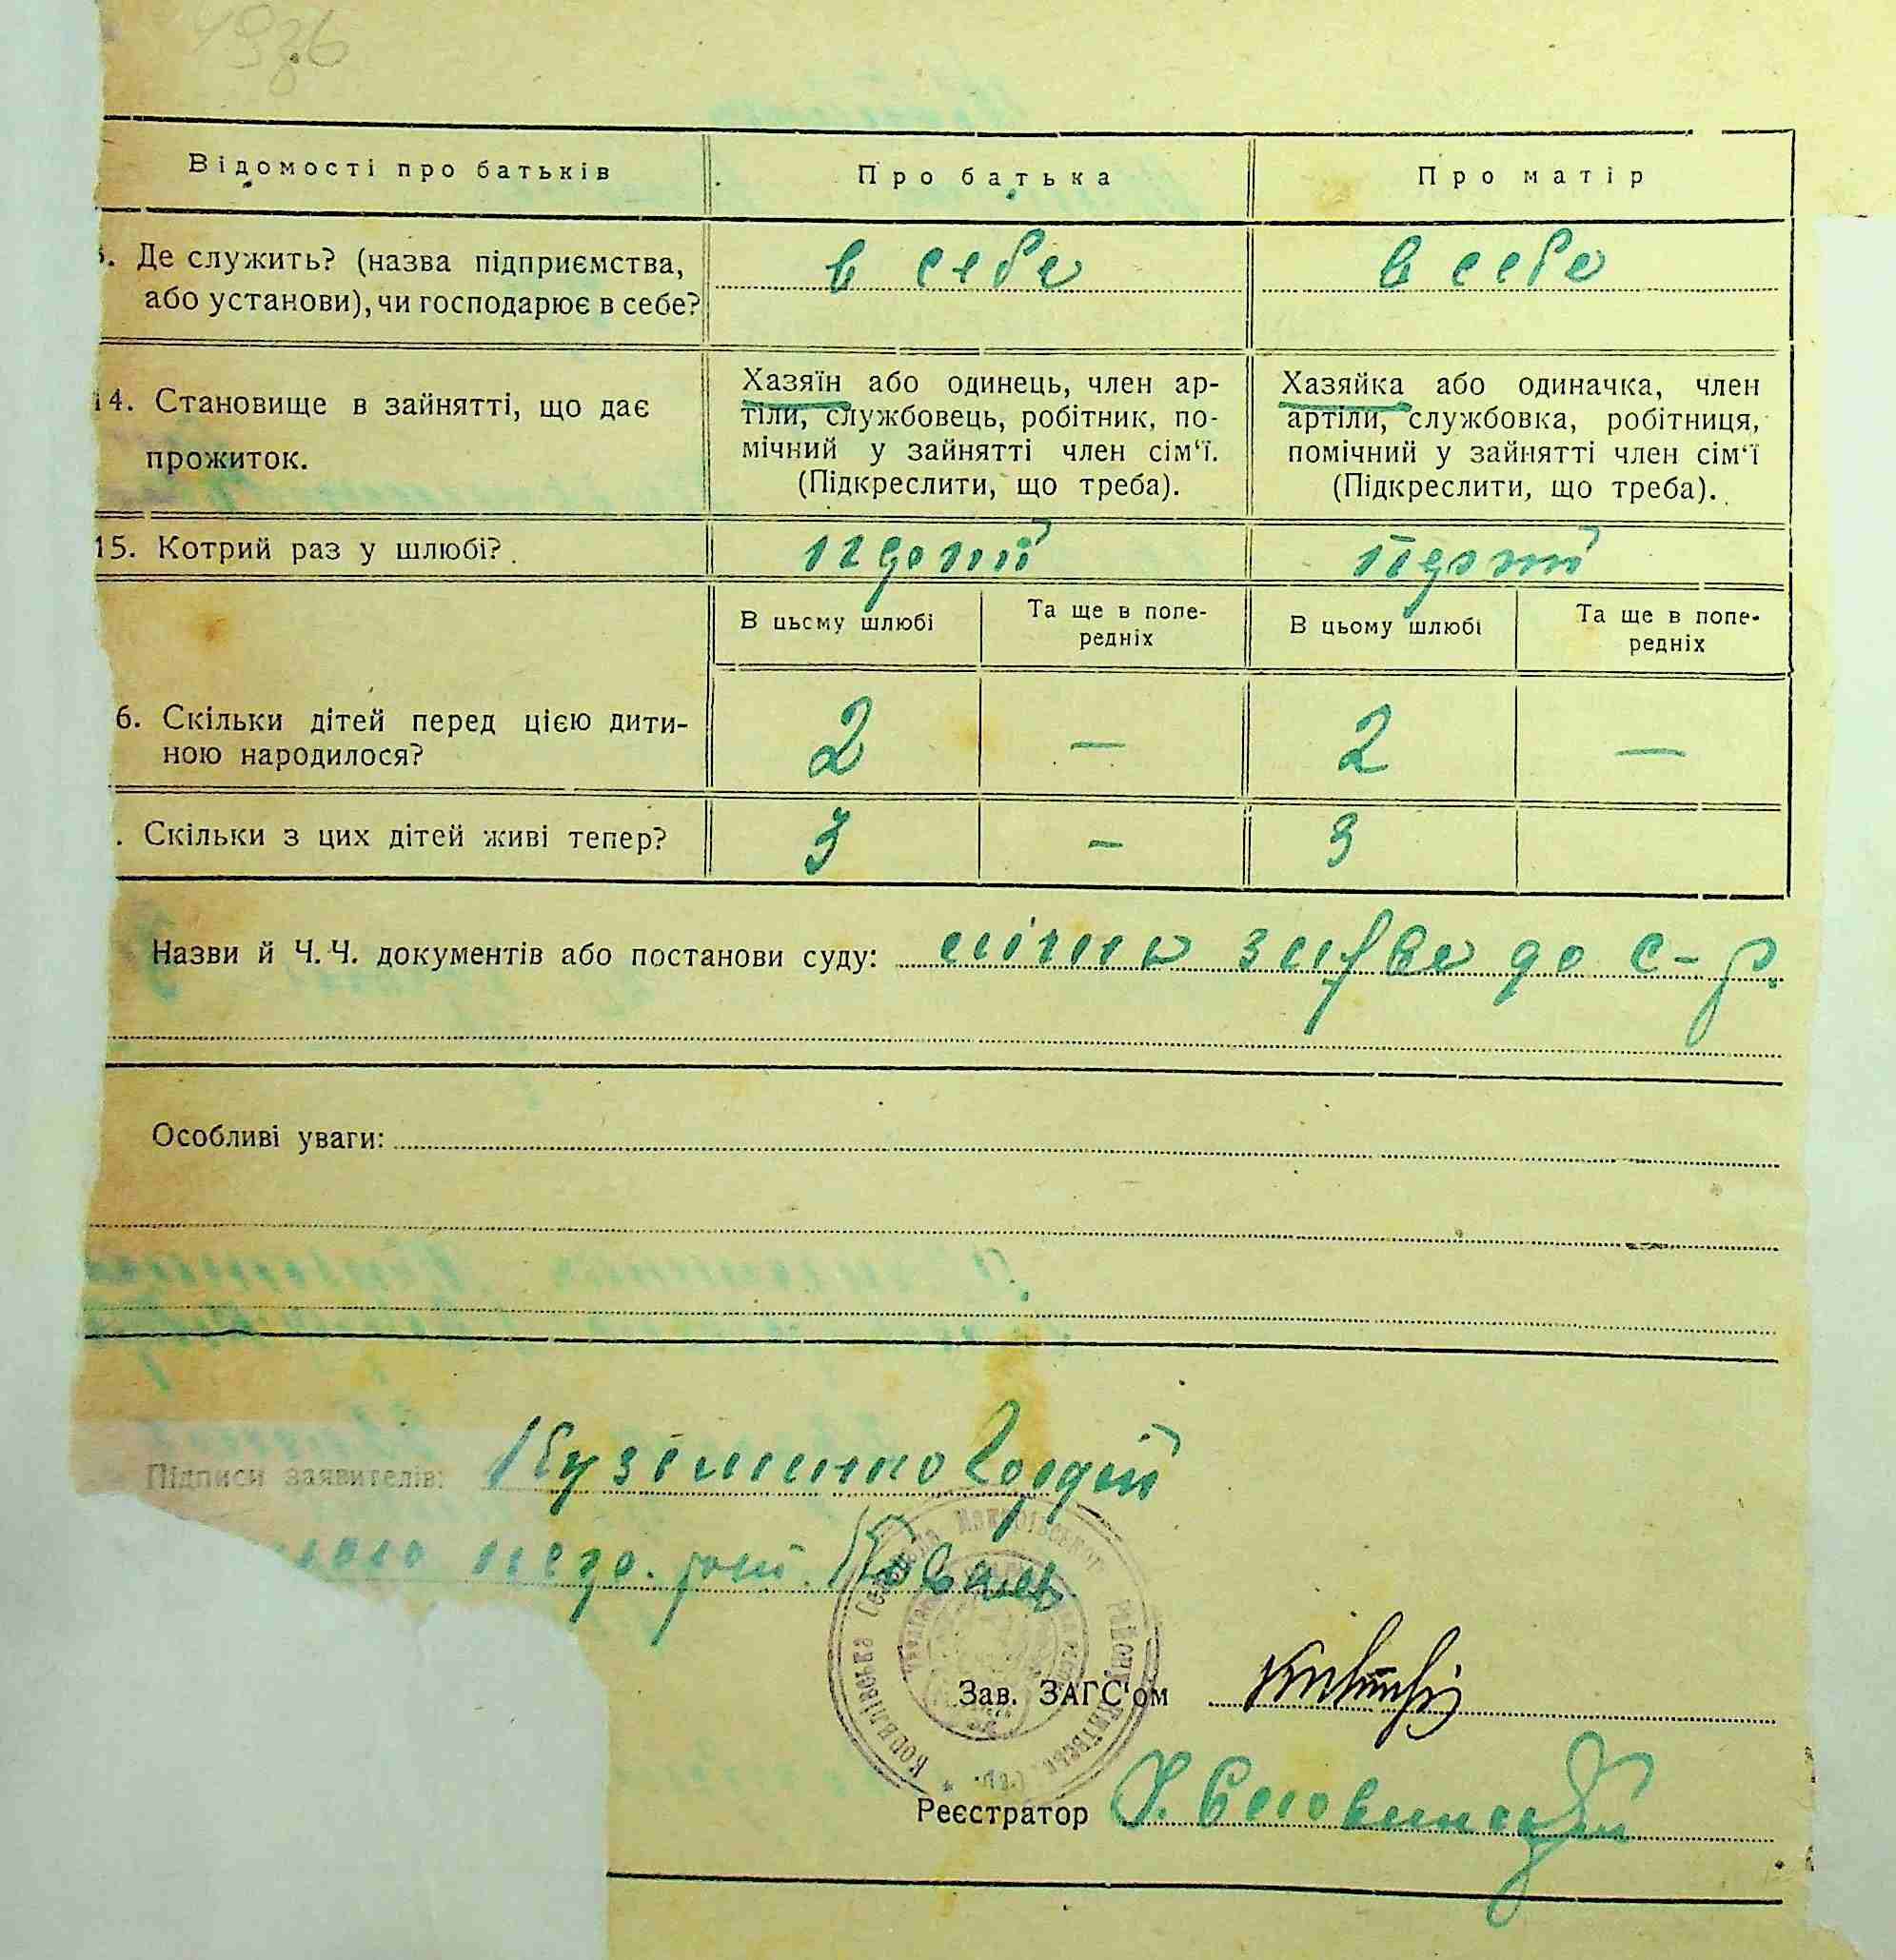 1926
Відомості про батьків
Про батька
Про матір
. Де служить? (назва підприємства,
або установи), чи господарює в себе?
в себе
в себе
14. Становище в зайнятті, що дає
прожиток.
Хазяїн або одинець, член ар-
тіли, службовець, робітник, по-
мічний у зайнятті член сім‘ї.
(Підкреслити, що треба).
Хазяйка або одиначка, член
артіли, службовка, робітниця,
помічний у зайнятті член сім‘ї
(Підкреслити, що треба).
15. Котрий раз у шлюбі?
В цьому шлюбі
Та ще в попе-
редніх
В цьому шлюбі
Та ще в попе-
редніх
6. Скільки дітей перед цією дити-
ною народилося?
2
—
2
—
. Скільки з цих дітей живі тепер?
3
—
3
Назви й Ч.Ч. документів або постанови суду: до с-р.
Особливі уваги:
Підписи заявителів: Кузьменко Гордій
Зав. ЗАГС‘ом
Реєстратор